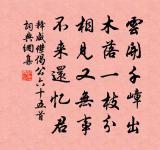 雲開千嶂出
木落一枝分
相見又無事
不來還憶君
釋咸傑偈公六十五首
詞典網集